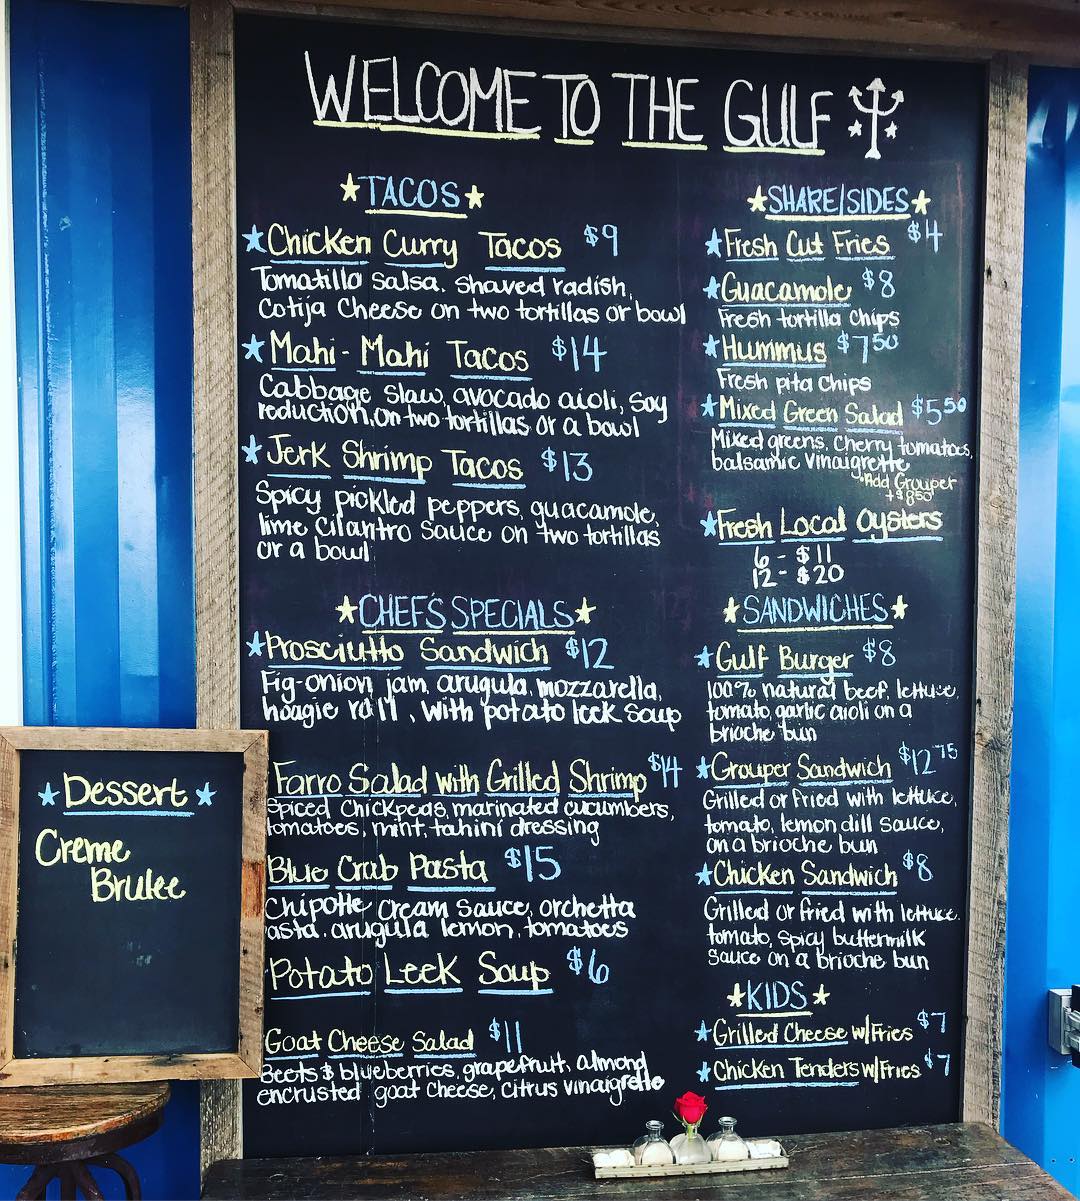 WELCOME TO THE GULF
TACOS
Chicken Curry Tacos $9
Tomatillo Salsa, Shaved radish,
Cotija Cheese on two tortillas or bowl
Mahi-Mahi Tacos $14
Cabbage Slaw, avocado aioli, Soy
reduction, on two tortillas or a bowl
Jerk Shrimp Tacos $13
Spicy pickled peppers, guacamole,
lime Cilantro Sauce on two tortillas
or a bowl
CHEF'S SPECIALS
Prosciutto Sandwich $12
Fig-onion jam, arugula, mozzarella,
hoagie roll, with potato leek soup
Farro Salad with Grilled Shrimp $14
Spiced Chickpeas, marinated cucumbers,
tomatoes, mint, tahini dressing
Blue Crab Pasta $15
Chipotle Cream Sauce, orchetta
asta, arugula lemon, tomatoes
Potato Leek Soup $6
Goat Cheese Salad $11
Beets & blueberries, grapefruit, almond
encrusted goat cheese, citrus vinaigrette
SHARE/SIDES
Fresh Cut Fries $4
Guacamole $8
Fresh tortilla chips
Hummus $7.50
Fresh pita chips
Mixed Green Salad $5.50
Mixed greens, Cherry tomatoes,
balsamic vinaigrette
*Add Grouper
+$8.50
Fresh Local Oysters
6 - $11
12 - $20
SANDWICHES
Gulf Burger $8
100% natural beef, lettuce,
tomato, garlic aioli on a
brioche bun
Grouper Sandwich $12.75
Grilled or fried with lettuce,
tomato, lemon dill sauce,
on a brioche bun
Chicken Sandwich $8
Grilled or fried with lettuce,
tomato, spicy buttermilk
sauce on a brioche bun
KIDS
Grilled Cheese w/Fries $7
Chicken Tenders w/Fries $7
Dessert
Creme
Brulee